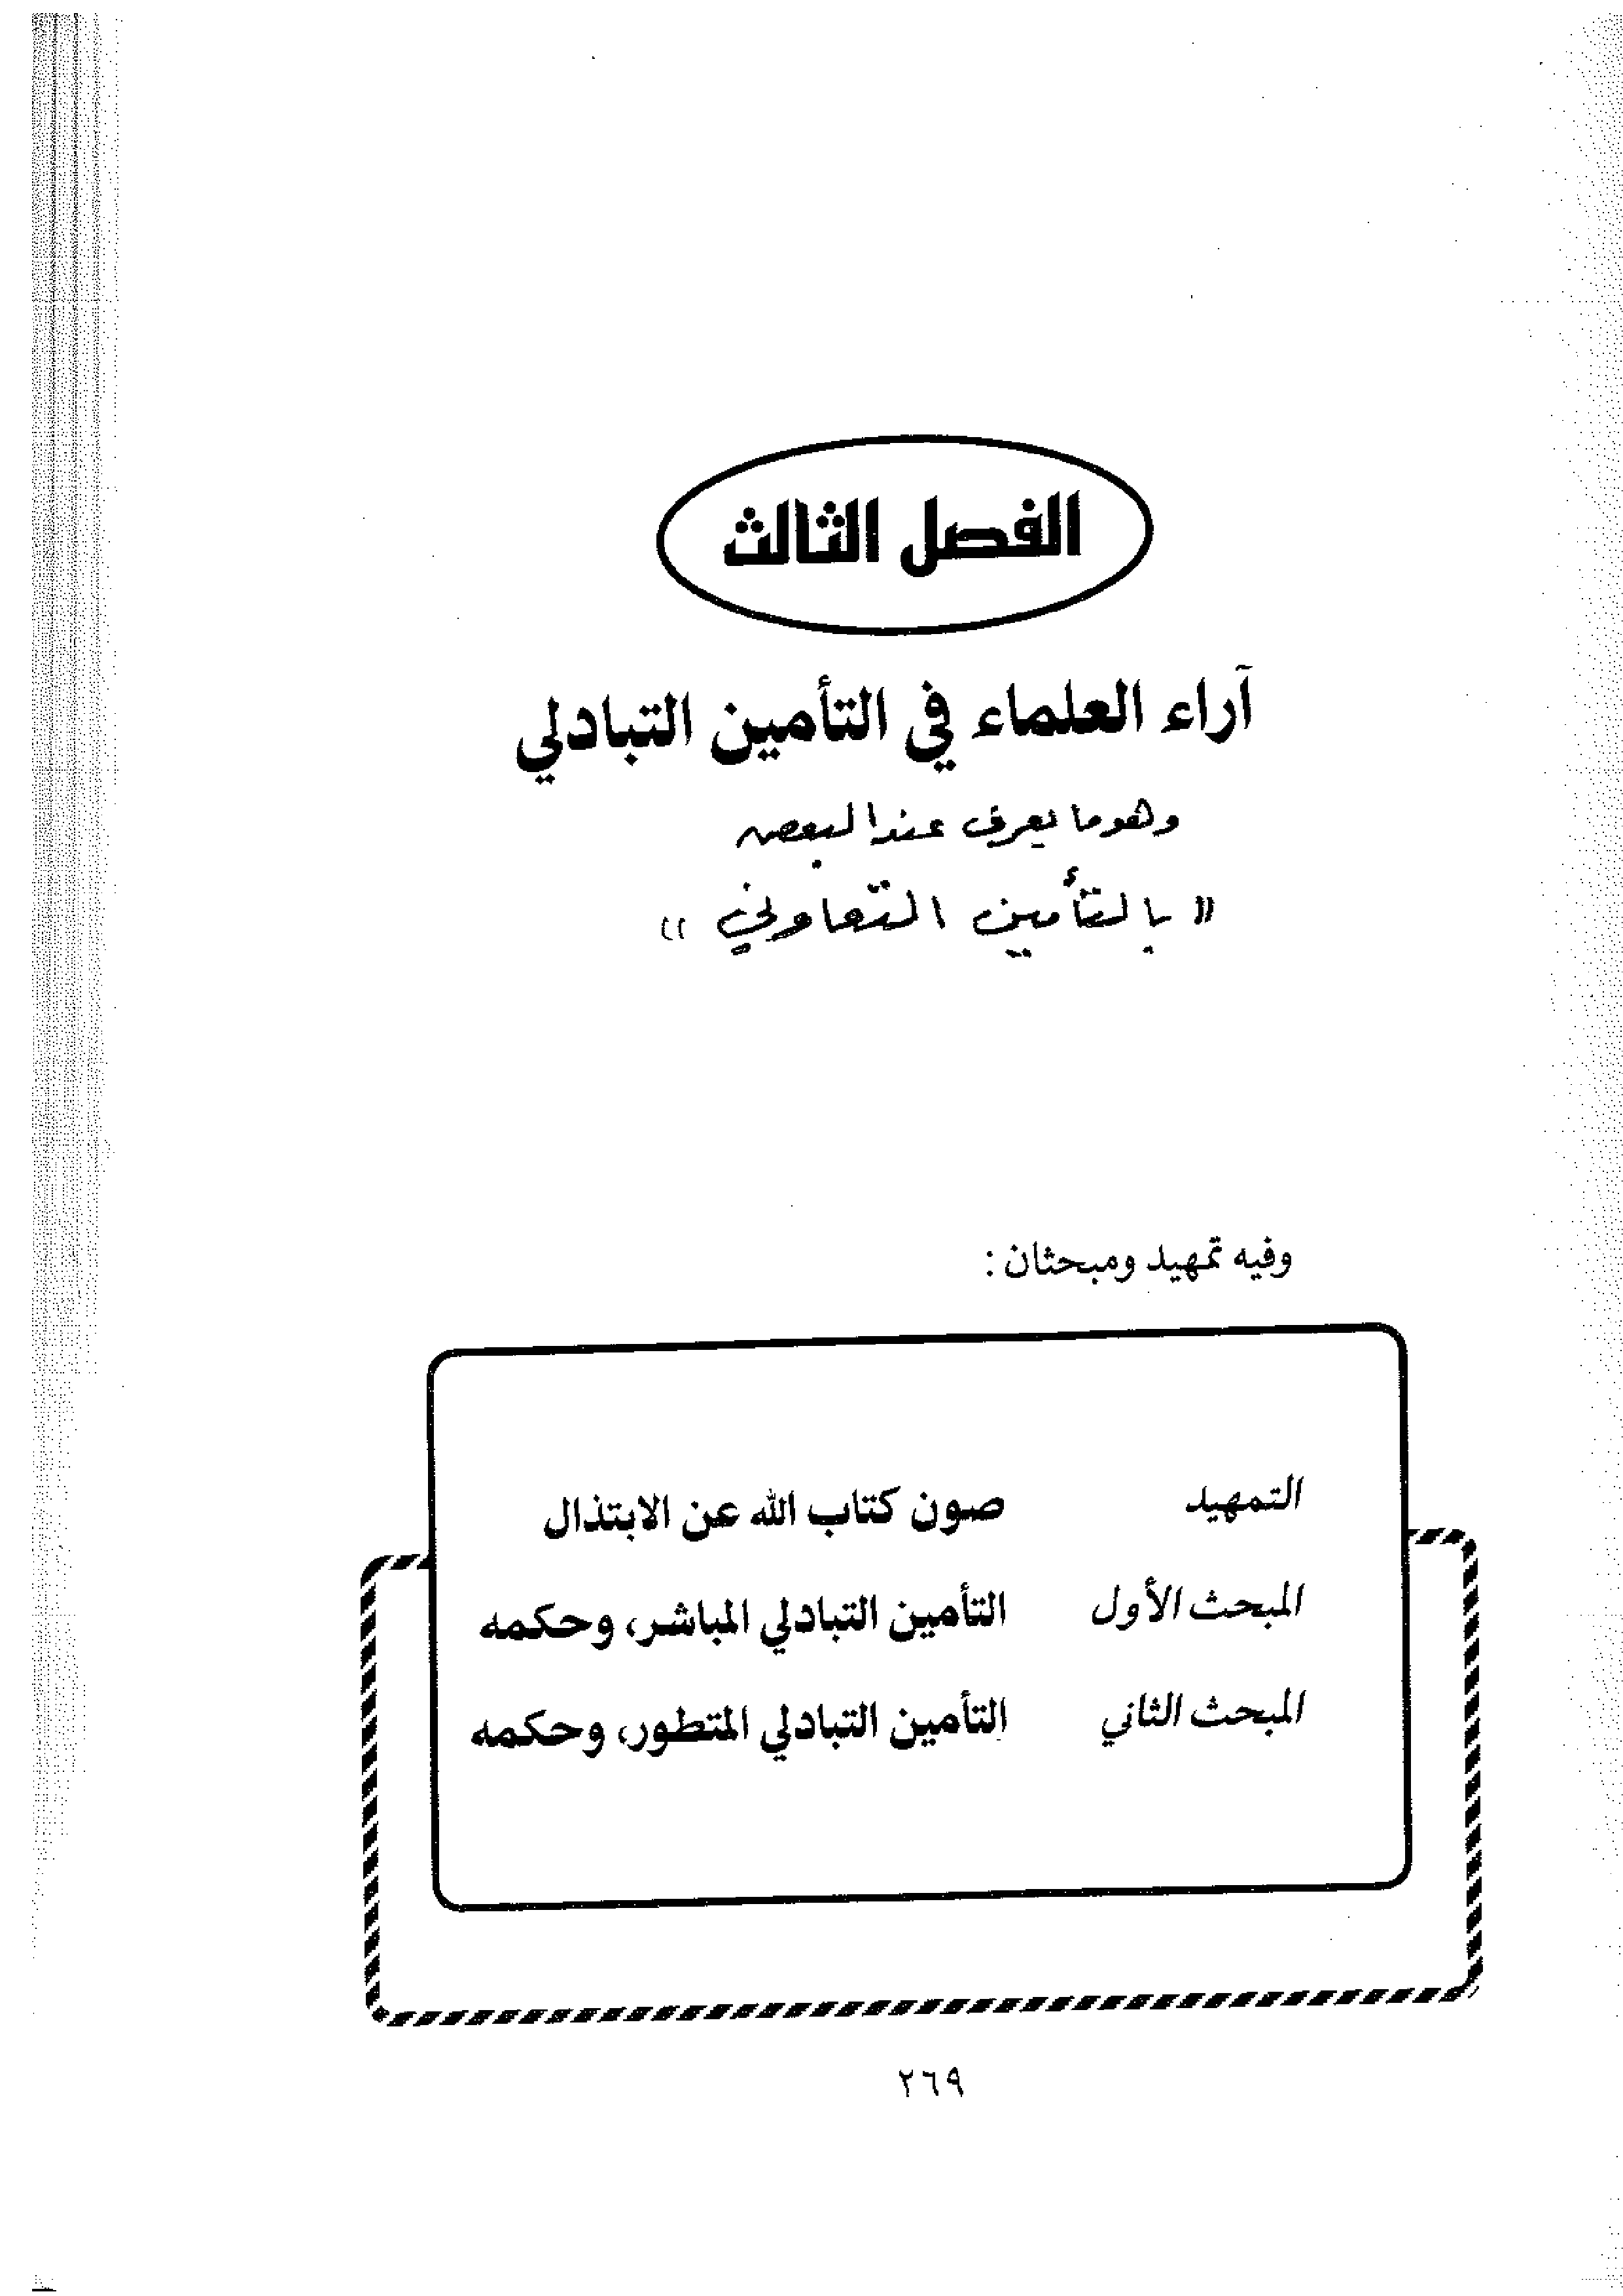 الفصل الثالث
آراء العلماء في التأمين التبادلي
وهو ما يعرف عند البعض
« بالتأمين التعاوني »
وفيه تمهيد ومبحثان :
التمهيد صون كتاب الله عن الابتذال
المبحث الأول التأمين التبادلي المباشر، وحكمه
المبحث الثاني التأمين التبادلي المتطور، وحكمه
٢٦٩